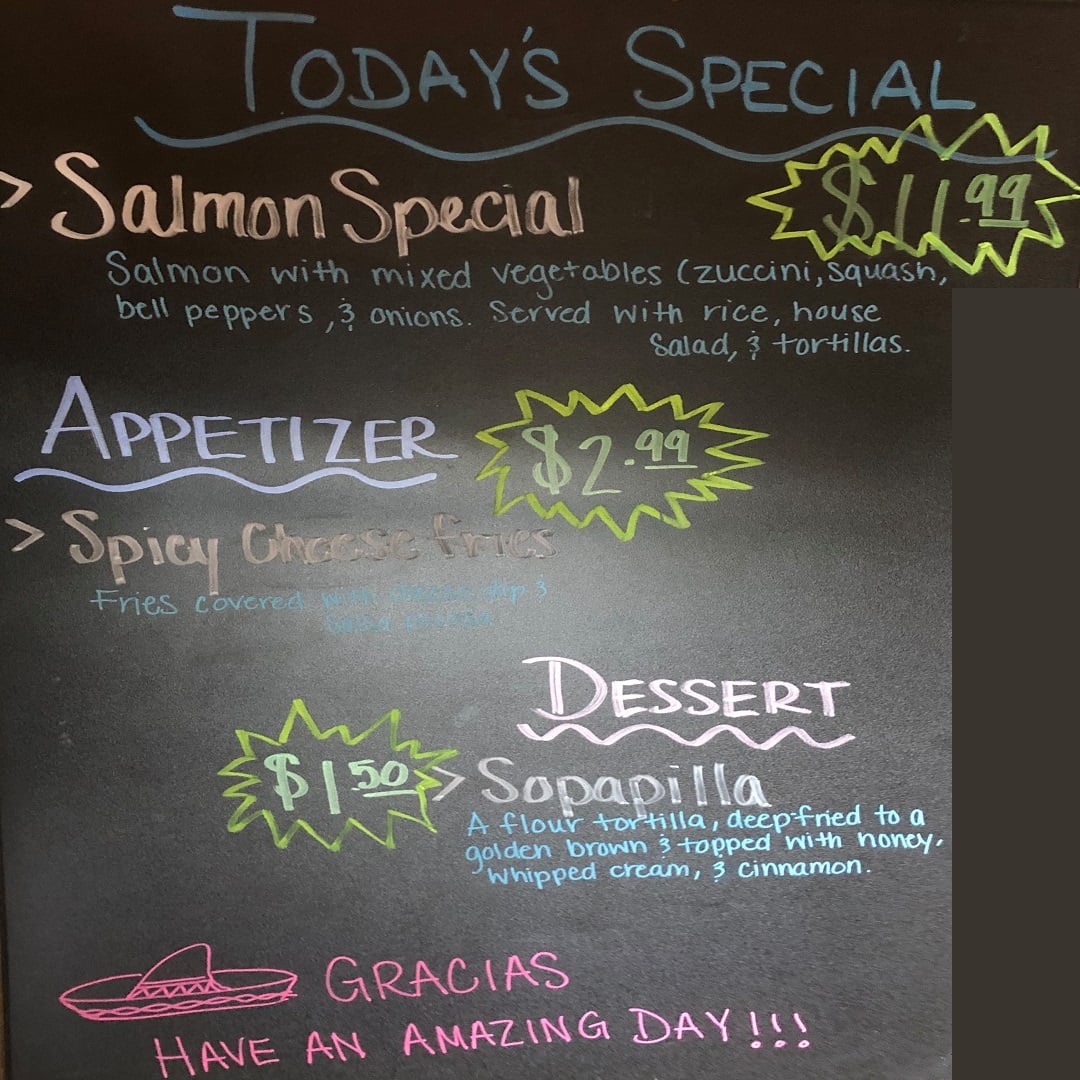 TODAY'S SPECIAL
> Salmon Special $11.99
Salmon with mixed vegetables (zuccini, squash,
bell peppers, & onions. Served with rice, house
salad, & tortillas.
APPETIZER $2.99
> Spicy Cheese Fries
Fries covered with cheese dip &
DESSERT
$1.50 > Sopapilla
A flour tortilla, deep-fried to a
golden brown & topped with honey,
whipped cream, & cinnamon.
GRACIAS
HAVE AN AMAZING DAY!!!